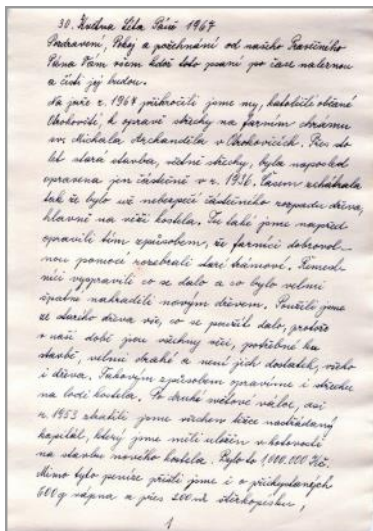 30. Května Léta Páně 1967
Pozdravení, Pokoj a požehnání od našeho Pravěčného
Pána Vám všem kdož toto psaní po čase naleznou
a čísti jej budou.
Na jaře r. 1967 přikročili jsme my, katoličtí občané
Otrokovičtí, k opravě střechy na farním chrámu
sv. Michala Archanděla v Otrokovicích. Přes sto
let stará stavba, včetně střechy, byla naposled
opravena jen částečně v r. 1936. Časem zchátrala
tak že bylo už nebezpečí částečného rozpadu dřeva,
hlavně na věži kostela. Tu také jsme napřed
opravili tím způsobem, že farníci dobrovol-
nou pomocí rozebrali staré trámové. Řemesl-
níci vyspravili co se dalo a co bylo velmi
špatné nahradili novým dřevem. Použili jsme
ze starého dřeva vše, co se použít dalo, protože
v naší době jsou všechny věci, potřebné ku
stavbě, velmi drahé a není jich dostatek, všeho
i dřeva. Takovým způsobem opravíme i střechu
na lodi kostela. Po druhé světové válce, asi
r. 1953 ztratili jsme všechen těžce nastřádaný
kapitál, který jsme měli uložen v hotovosti
na stavbu nového kostela. Bylo to 1,000.000 Kč.
Mimo tyto peníze přišli jsme i o přichystaných
600 q vápna a přes 200 m štěrkopísku,
1